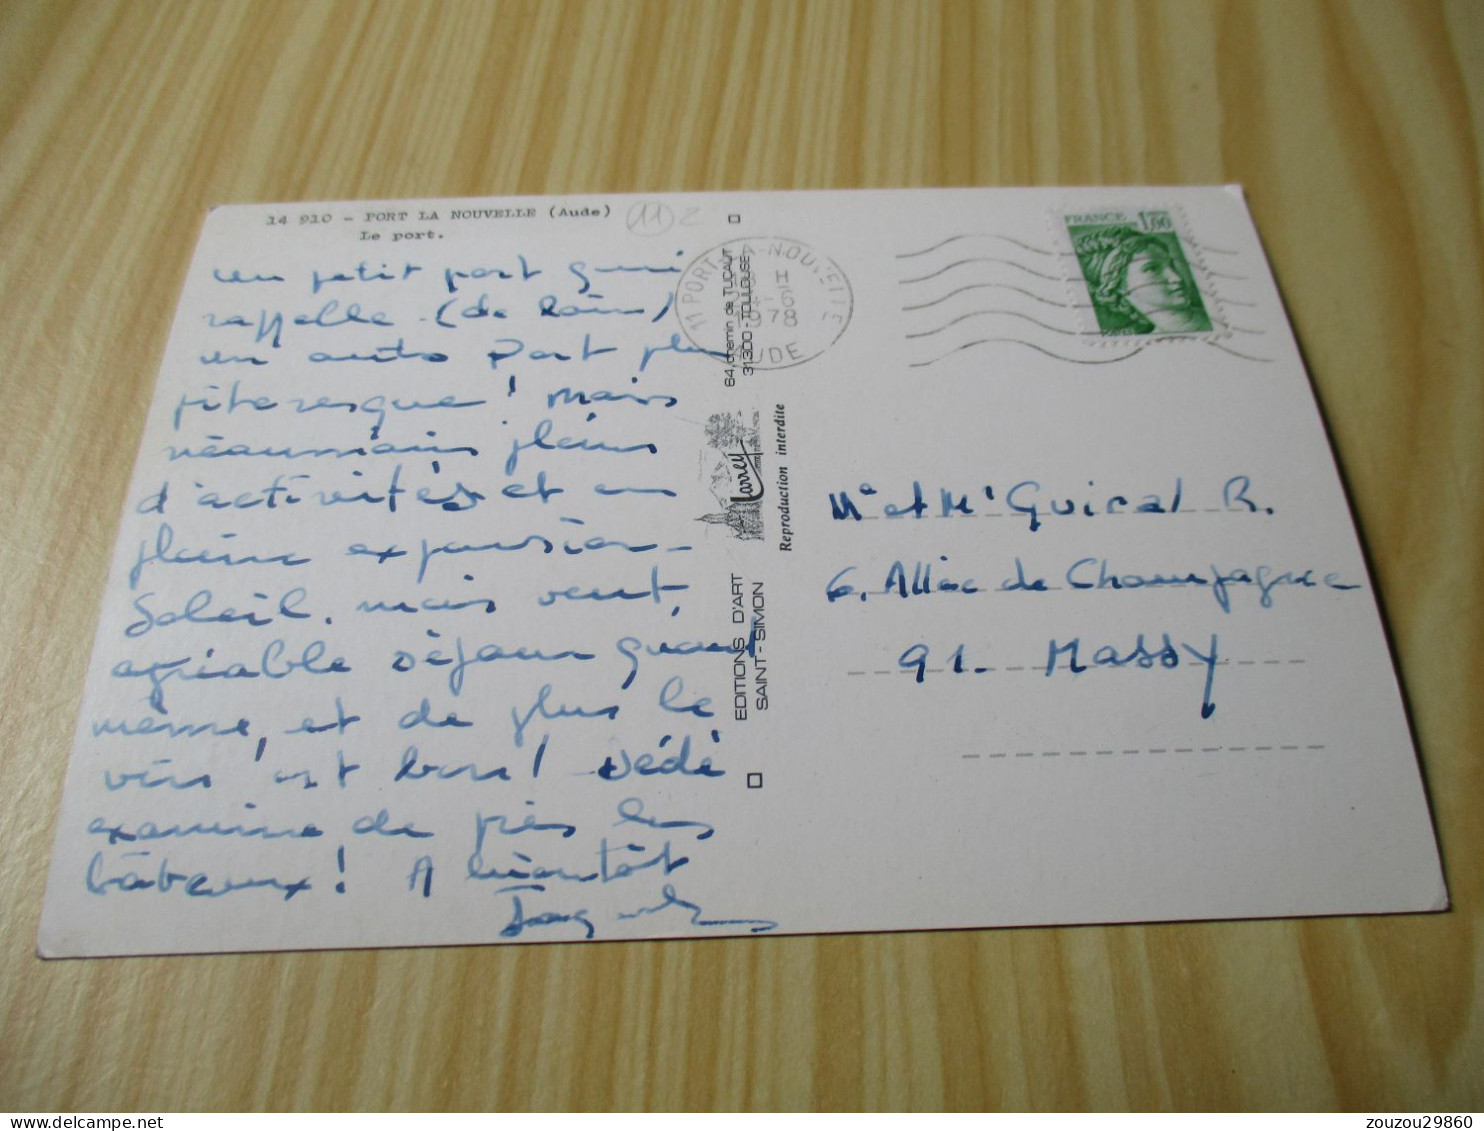 14 910 - PORT LA NOUVELLE (Aude)
Le port.
11
un petit port qui
rappelle (de loin)
un autre Port plus
pitoresque! mais
néanmoins pleins
d'activités et en
pleine expansion_
Soleil, mais vent,
agréable séjour quand
même, et de plus le
vin est bon! Dédé
examine de près les
bâteaux! A bientôt
64, chemin de TUCAUT
31300 - TOULOUSE
Larrey
Reproduction interdite
EDITIONS D'ART
SAINT-SIMON
11 PORT-LA-NOUVELLE
H
4-6
1978
AUDE
FRANCE 1,00
Me et Mr Guiral R.
6. Allée de Champagne
91. Massy
zouzou29860